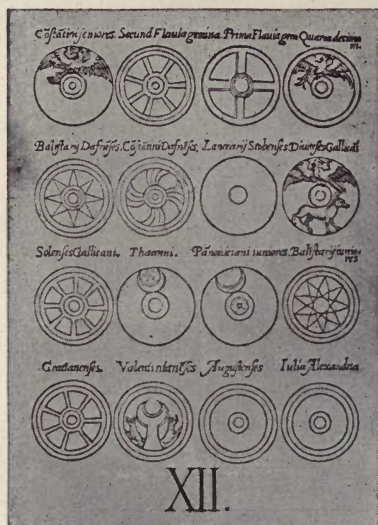 Cõstãtini seniores. Secund Flauia gemina. Prima Flauia gem Quarta decima
ni.
Balistarij Dafnẽses. Cõstanni Dafnẽses. Lancearij Stobenses. Diuitẽses Gallicani
Solenses Gallicani. Thaanni. Pãnoniciani iuniores. Balistarij iunio
res
Gratianenses. Valentinianẽses Augustenses Iulia Alexandria
XII.